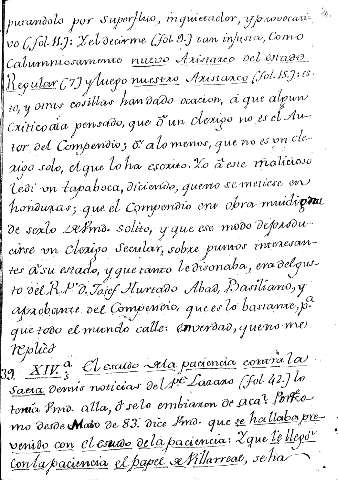 purandolo por superfluo, inquietador, y provocati-
vo (fol. 11.): Y el decirme (fol. 9.) tan injusta, como
Calumniosamente nuevo Aristarco del estado
Regular (7) y luego nuestro Aristarco (fol. 15.): es-
to, y otras cosillas han dado ocasion, à que algun
Critico aia pensado, que ò un clerigo no es el Au-
tor del Compendio; ò alo menos, que no es un cle-
rigo solo, el que lo ha escrito. Yo à este malicioso
le di un tapaboca, diciendo, que no se metiese en
honduras; que el Compendio era obra
de solo Vmd. solito, y que ese modo de produ-
cirse un Clerigo Secular, sobre puntos interesan-
tes à su estado, y que tanto le disonaba, era del gus-
to del R. P. D. Josef Hurtado Abad, Basiliano, y
aprobante del Compendio, que es lo bastante, pa.
que todo el mundo calle: en verdad, que no me
replicò
39. XIV.a El escudo de la paciencia contra la
Saeta de mis noticias del Pe. Lazaro (fol. 42.) lo
tenia Vmd. alla, ò se lo embiaron de acà? Porko
mo desde Maio de 83. dice Vmd. que se hallaba pre-
venido con el escudo de la paciencia: Y que le llegò
con la paciencia el papel de Villarreal, se ha